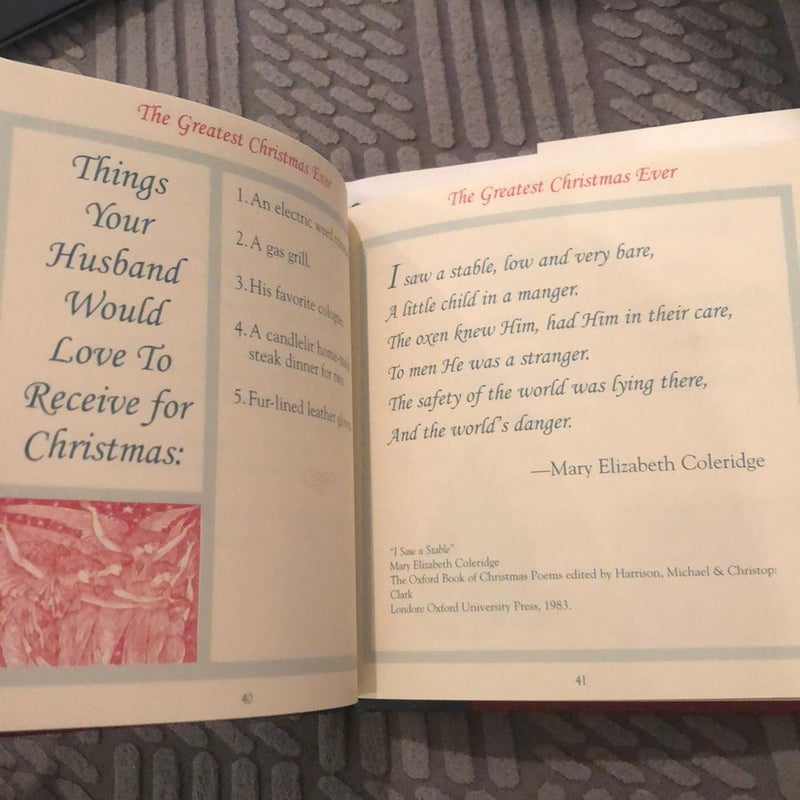 The Greatest Christmas Ever
Things
Your
Husband
Would
Love To
Receive for
Christmas:
1. An electric weed
2. A gas grill.
3. His favorite cologne
4. A candlelit
steak dinner for two.
5. Fur-lined leather
40
The Greatest Christmas Ever
I saw a stable, low and very bare,
A little child in a manger.
The oxen knew Him, had Him in their care,
To men He was a stranger.
The safety of the world was lying there,
And the world's danger.
—Mary Elizabeth Coleridge
"I Saw a Stable"
Mary Elizabeth Coleridge
The Oxford Book of Christmas Poems edited by Harrison, Michael & Christop:
Clark
London: Oxford University Press, 1983.
41